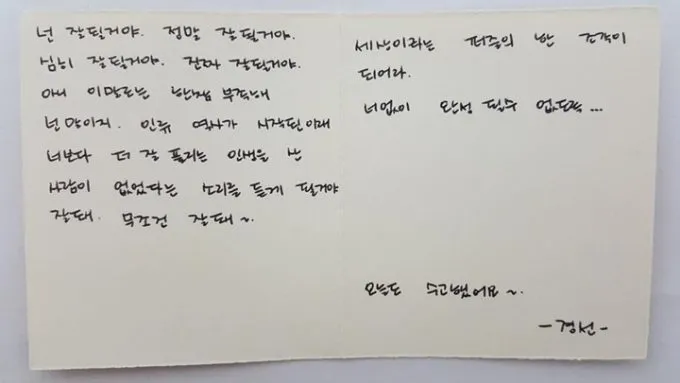 넌 잘될거야. 정말 잘될거야.
심히 잘될거야. 진짜 잘될거야.
아니 이말로는 한참 부족해
넌말이지. 인류 역사가 시작된이래
너보다 더 잘 풀리는 인생을 산
사람이 없었다는 소리를 듣게 될거야
잘돼. 무조건 잘돼~.
세상이라는 퍼즐의 한 조각이
되어라.
너없이 완성 될수 없도록...
오늘도 수고했어요~.
-경선-